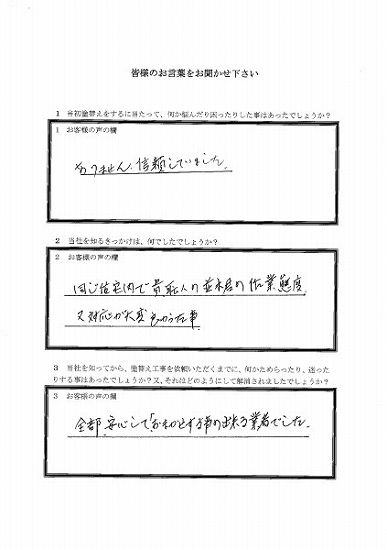 皆様のお言葉をお聞かせ下さい
1 当初塗替えをするに当たって、何か悩んだり困ったりした事はあったでしょうか?
1 お客様の声の欄
ありません、信頼していました。
2 当社を知るきっかけは、何でしたでしょうか?
2 お客様の声の欄
同じ住宅内で貴転人の 作業態度
又対応が大変良かった事
3 当社を知ってから、塗替え工事を依頼いただくまでに、何かためらったり、迷った
りする事はあったでしょうか?又、それはどのようにして解消されましたでしょうか?
3 お客様の声の欄
全部、安心しておまかせする事の出来る業者でした。